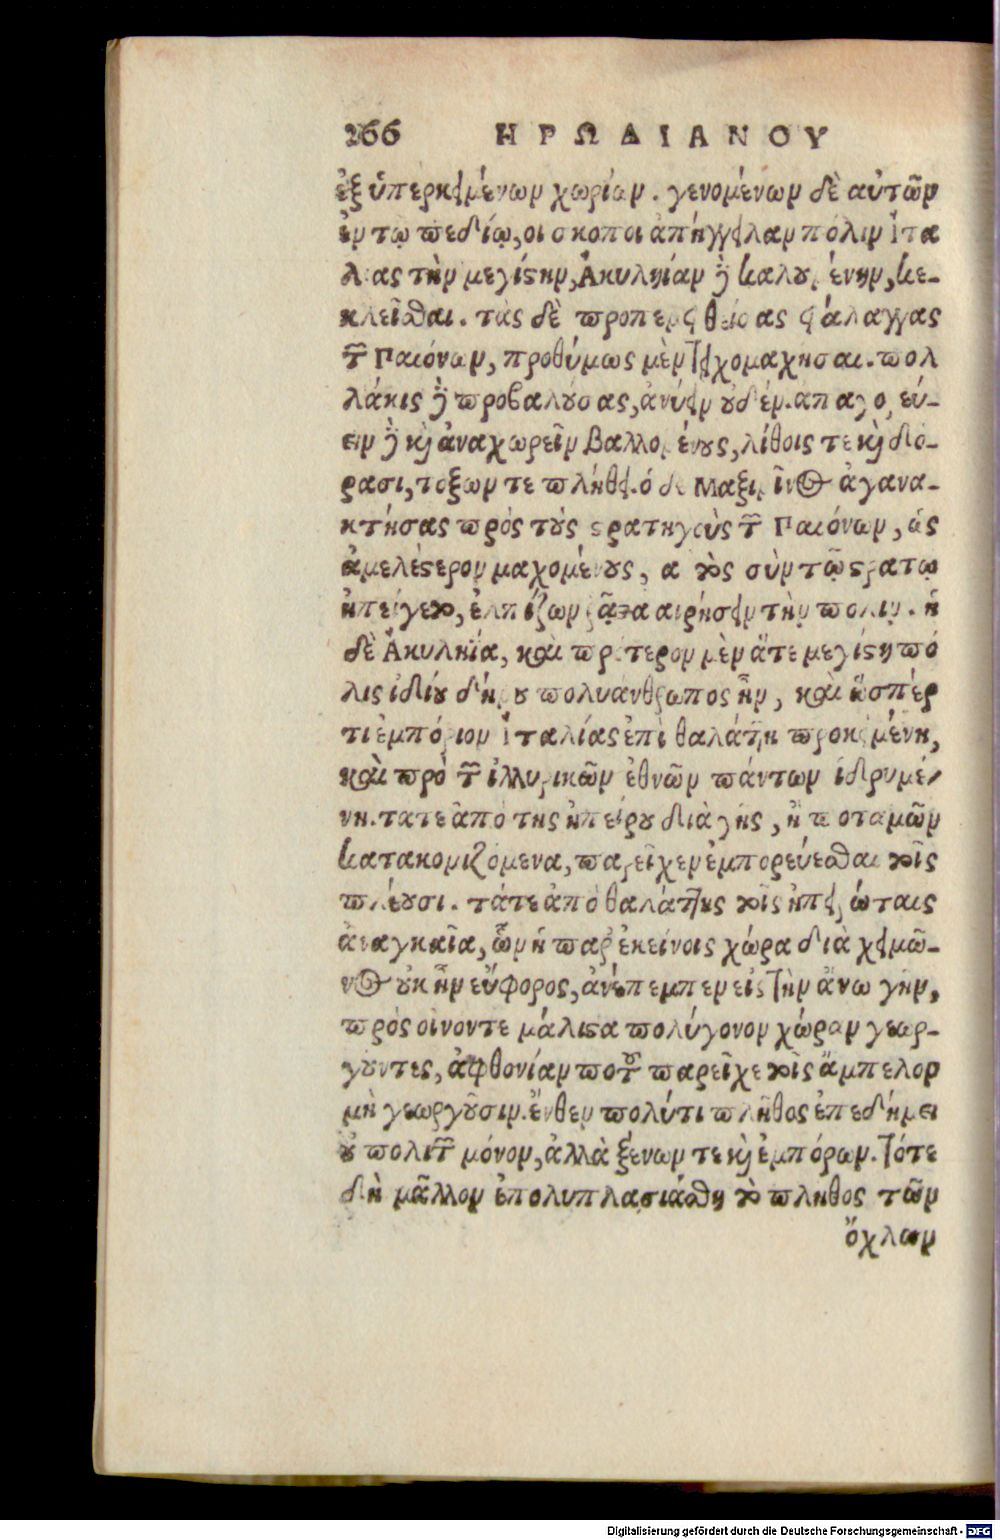 266 ΗΡΩΔΙΑΝΟΥ
ἐξ ὑπερκειμένων χωρίων. γενομένων δὲ αὐτῶν
ἐν τῳ πεδίῳ, οι σκοποι ἀπήγγειλαν πόλιν Ἰτα
λίας τὴν μεγίστην, Ἀκυληίαν δὲ καλουμένην, κε-
κλεῖσθαι. τὰς δὲ προπεμφθείσας φάλαγγας
τῶν Παιόνων, προθύμως μὲν τειχομαχῆσαι. πολ
λάκις δὲ προσβαλούσας, ἀνύειν οὐδέν. ἀπαγορεύ-
ειν δὲ καὶ ἀναχωρεῖν βαλλομένους, λίθοις τε καὶ δό-
ρασι, τοξων τε πλήθει. ὁ δὲ Μαξιμῖνος ἀγανα-
κτήσας πρὸς τοὺς στρατηγοὺς τῶν Παιόνων, ὡς
ἀμελέστερον μαχομένους, αὐτὸς σὺν τῷ στρατῳ
ἠπείγετο, ἐλπίζων ῥᾷστα αἱρήσειν τὴν πόλιν. ἡ
δὲ Ἀκυληία, καὶ πρότερον μὲν ἅτε μεγίστη πό
λις ἰδίου δήμου πολυάνθρωπος ἦν, καὶ ὥσπερ
τι ἐμπόριον Ἰταλίας ἐπὶ θαλάττῃ προκειμένη,
καὶ πρὸ τῶν ἰλλυρικῶν ἐθνῶν πάντων ἱδρυμέ-
νη. τά τε ἀπὸ της ἠπείρου διὰ γῆς, ἢ ποταμῶν
κατακομιζόμενα, παρεῖχεν ἐμπορεύεσθαι τοῖς
πλέουσι. τά τε ἀπὸ θαλάττης τοῖς ἠπειρώταις
ἀναγκαῖα, ὧν ἡ παρ' ἐκείνοις χώρα διὰ χειμῶ-
νος οὐκ ἦν εὔφορος, ἀνέπεμπεν εἰς τὴν ἄνω γῆν,
πρὸς οἶνόν τε μάλιστα πολύγονον χώραν γεωρ-
γοῦντες, ἀφθονίαν ποτοῦ παρεῖχε τοῖς ἄμπελον
μὴ γεωργοῦσιν. ἔνθεν πολύ τι πλῆθος ἐπεδήμει
οὐ πολιτῶν μόνον, ἀλλὰ ξένων τε καὶ ἐμπόρων. τότε
δὴ μᾶλλον ἐπολυπλασιάσθη τὸ πληθος τῶν
ὄχλων
Digitalisierung gefördert durch die Deutsche Forschungsgemeinschaft - DFG